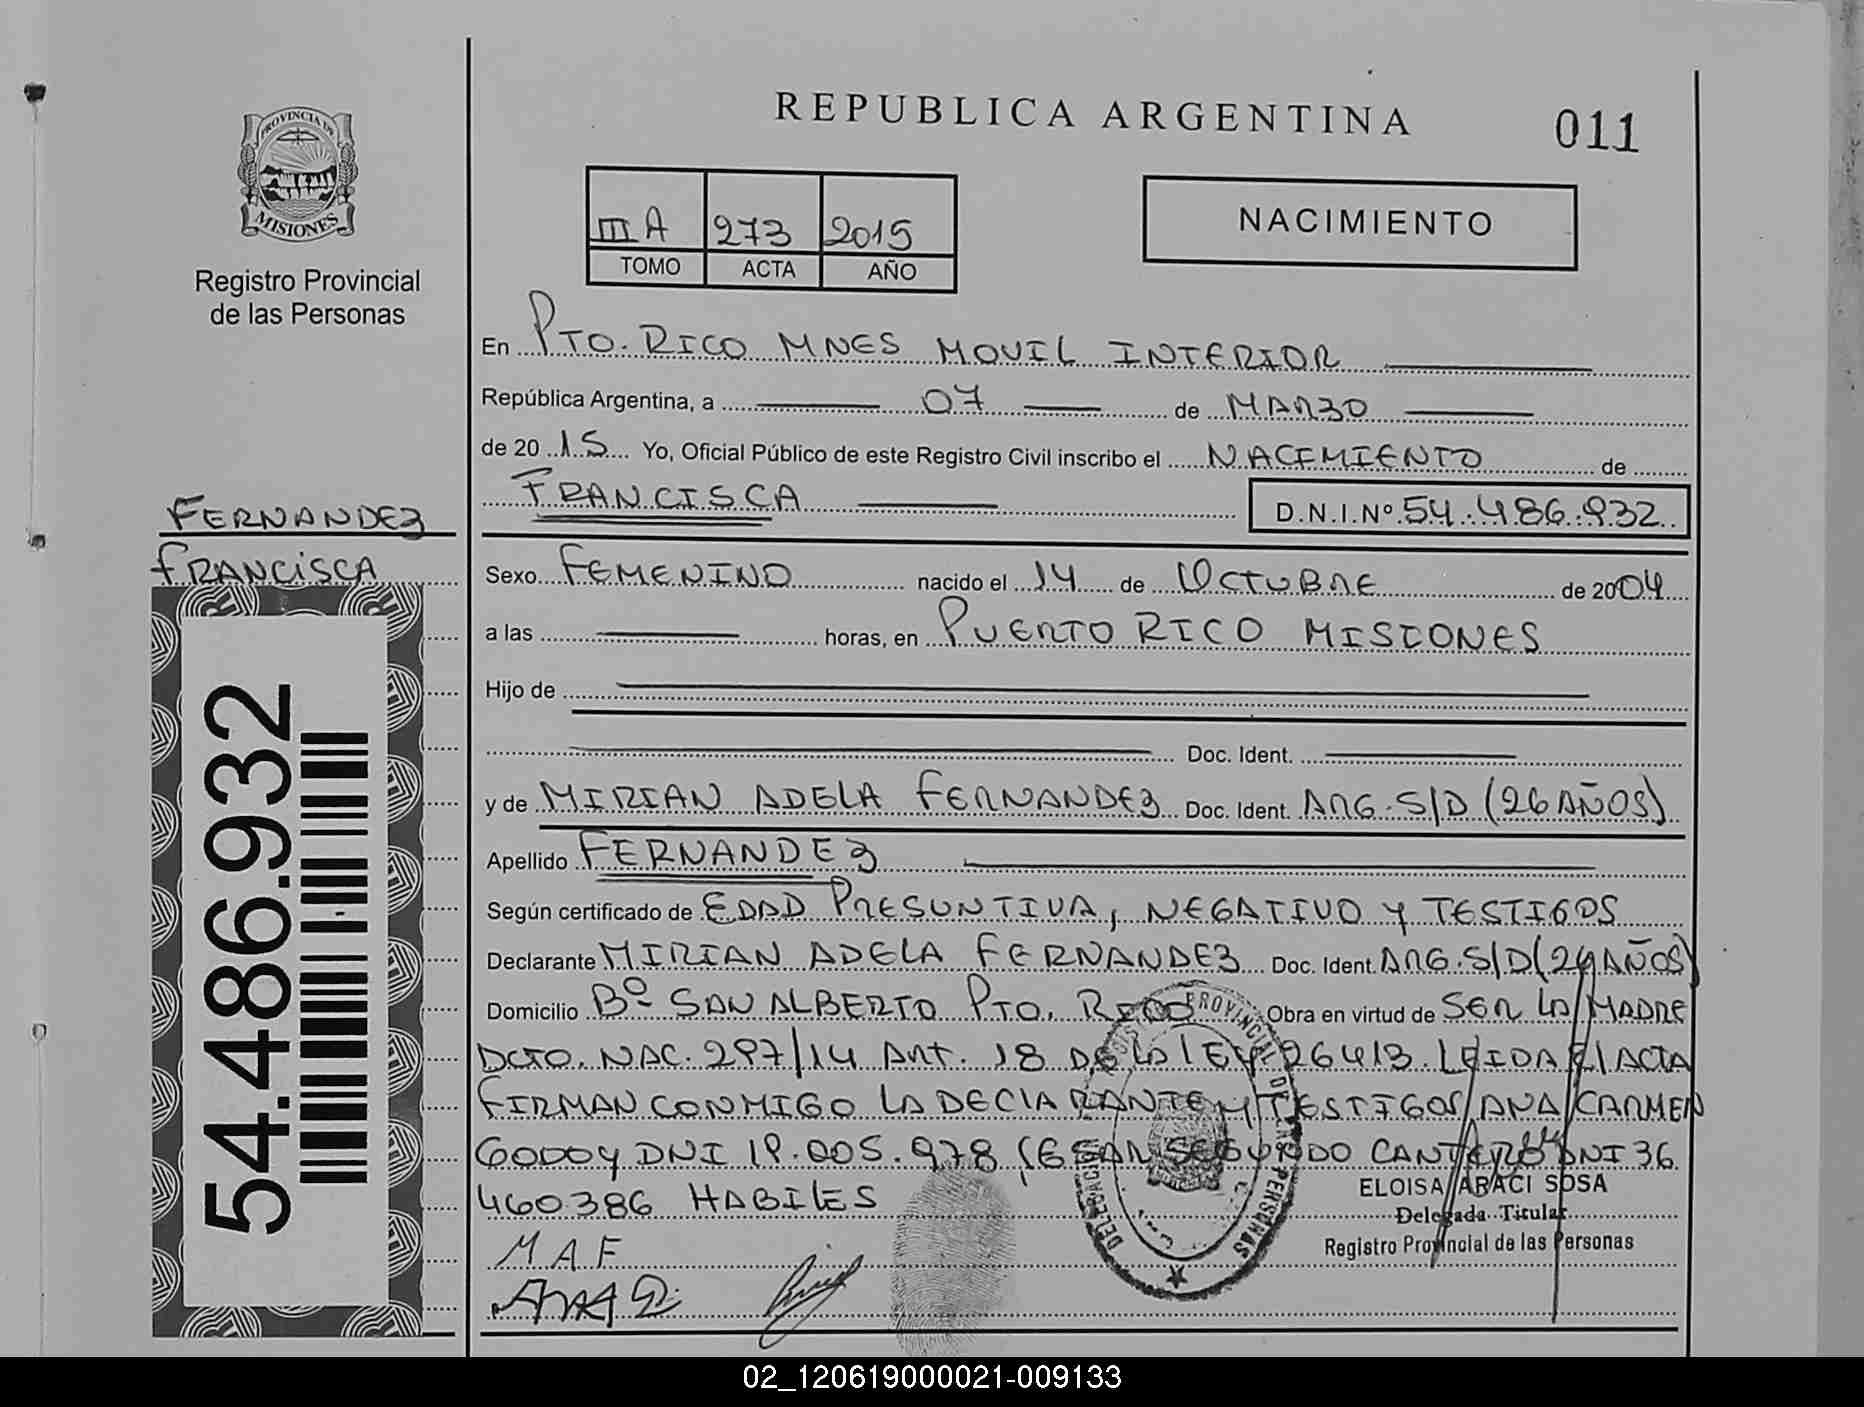 REPUBLICA ARGENTINA
011
PROVINCIA DE
MISIONES
Registro Provincial
de las Personas
III A 273 2015
TOMO ACTA AÑO
NACIMIENTO
En PTO. RICO MNES MOVIL INTERIOR
República Argentina, a 07 de MARZO
de 2015 Yo, Oficial Público de este Registro Civil inscribo el NACIMIENTO de
FRANCISCA D.N.I.Nº 54.486.932
FERNANDEZ
FRANCISCA
54.486.932
Sexo FEMENINO nacido el 14 de OCTUBRE de 2004
a las horas, en PUERTO RICO MISIONES
Hijo de
Doc. Ident.
y de MIRIAN ADELA FERNANDEZ Doc. Ident. ARG. S/D (26 AÑOS)
Apellido FERNANDEZ
Según certificado de EDAD PRESUNTIVA, NEGATIVO Y TESTIGOS
Declarante MIRIAN ADELA FERNANDEZ Doc. Ident. ARG. S/D ( AÑOS)
Domicilio Bº SAN ALBERTO PTO. RICO Obra en virtud de SER LA MADRE
DCTO. NAC. 297/14 ART. 18 DE LA LEY 26413. LEIDA EL ACTA
FIRMAN CONMIGO LA DECLARANTE Y TESTIGOS ANA CARMEN
GODOY DNI 18.005.978 SEGUNDO CANTERO DNI 36
460386 HABILES
ELOISA ARACI SOSA
Delegada Titular
Registro Provincial de las Personas
PROVINCIAL DE LAS PERSONAS
DELEGACION
M A F
02_120619000021-009133